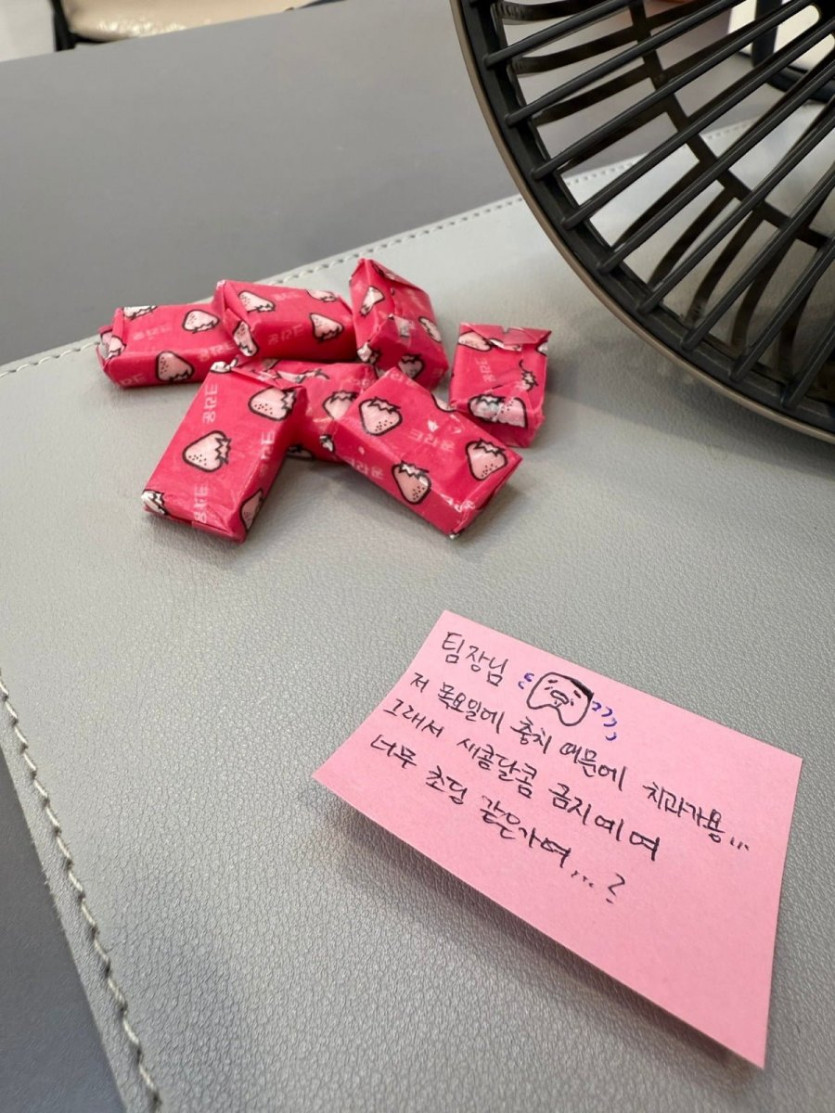 팀장님
저 목요일에 충치 때문에 치과가용...
그래서 새콩달콤 금지예여
너무 초딩 같은가여...?